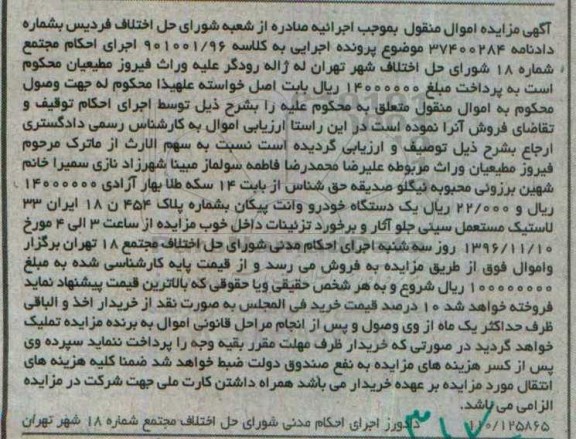 آگهی مزایده اموال منقول بموجب اجرائیه صادره از شعبه شورای حل اختلاف فردیس بشماره
دادنامه ۳۷۴۰۰۲۸۴ موضوع پرونده اجرایی به کلاسه ۹۰۱۰۰۱/۹۶ اجرای احکام مجتمع
شماره ۱۸ شورای حل اختلاف شهر تهران له ژاله رودگر علیه وراث فیروز مطیعیان محکوم
است به پرداخت مبلغ ۱۴۰۰۰۰۰۰ ریال بابت اصل خواسته علهیذا محکوم له جهت وصول
محکوم به اموال منقول متعلق به محکوم علیه را بشرح ذیل توسط اجرای احکام توقیف و
تقاضای فروش آنرا نموده است در این راستا ارزیابی اموال به کارشناس رسمی دادگستری
ارجاع بشرح ذیل توصیف و ارزیابی گردیده است نسبت به سهم الارث از ماترک مرحوم
فیروز مطیعیان وراث مربوطه علیرضا محمدرضا فاطمه سولماز مبینا شهرزاد نازی سمیرا خانم
شهین برزوئی محبوبه نیگلو صدیقه حق شناس از بابت ۱۴ سکه طلا بهار آزادی ۱۴۰۰۰۰۰۰
ریال و ۲۲/۰۰۰ ریال یک دستگاه خودرو وانت پیکان بشماره پلاک ۴۵۴ ن ۱۸ ایران ۳۳
لاستیک مستعمل سینی جلو آثار و برخورد تزئینات داخل خوب مزایده از ساعت ۳ الی ۴ مورخ
۱۳۹۶/۱۱/۱۰ روز سه شنبه اجرای احکام مدنی شورای حل اختلاف مجتمع ۱۸ تهران برگزار
واموال فوق از طریق مزایده به فروش می رسد و از قیمت پایه کارشناسی شده به مبلغ
۱۰۰۰۰۰۰۰۰ ریال شروع و به هر شخص حقیقی ویا حقوقی که بالاترین قیمت پیشنهاد نماید
فروخته خواهد شد ۱۰ درصد قیمت خرید فی المجلس به صورت نقد از خریدار اخذ و الباقی
ظرف حداکثر یک ماه از وی وصول و پس از انجام مراحل قانونی اموال به برنده مزایده تملیک
خواهد گردید در صورتی که خریدار ظرف مهلت مقرر بقیه وجه را پرداخت ننماید سپرده وی
پس از کسر هزینه های مزایده به نفع صندوق دولت ضبط خواهد شد ضمنا کلیه هزینه های
انتقال مورد مزایده بر عهده خریدار می باشد همراه داشتن کارت ملی جهت شرکت در مزایده
الزامی می باشد.
۱۱۰/۱۲۵۸۶۵ دادورز اجرای احکام مدنی شورای حل اختلاف مجتمع شماره ۱۸ شهر تهران